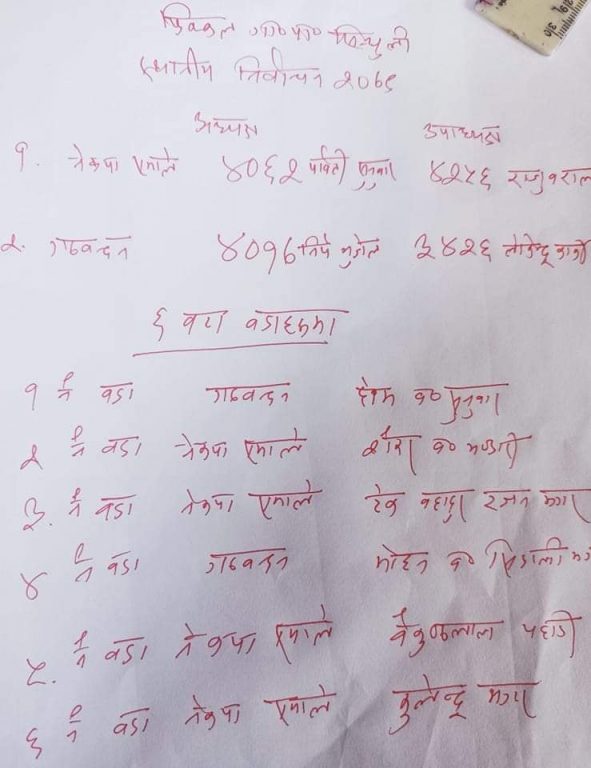 फिक्कल गा०पा० सिन्धुली
स्थानीय निर्वाचन २०७९
अध्यक्ष उपाध्यक्ष
१. नेकपा एमाले ४०६२ पार्वती सुनुवार ४२५६ राजु बराल
२. गठबन्धन ४०१६ ३४२६ लोकेन्द्र कार्की
६ वटा वडाहरुमा
१ नं वडा गठबन्धन देउम ब० सुनुवार
२ नं वडा नेकपा एमाले ब० भण्डारी
३. नं वडा नेकपा एमाले टेक बहादुर मगर
४ नं वडा गठबन्धन मोहन ब०
५. नं वडा नेकपा एमाले वैकुण्ठलाल पहाडी
६ नं वडा नेकपा एमाले कुलेन्द्र मगर